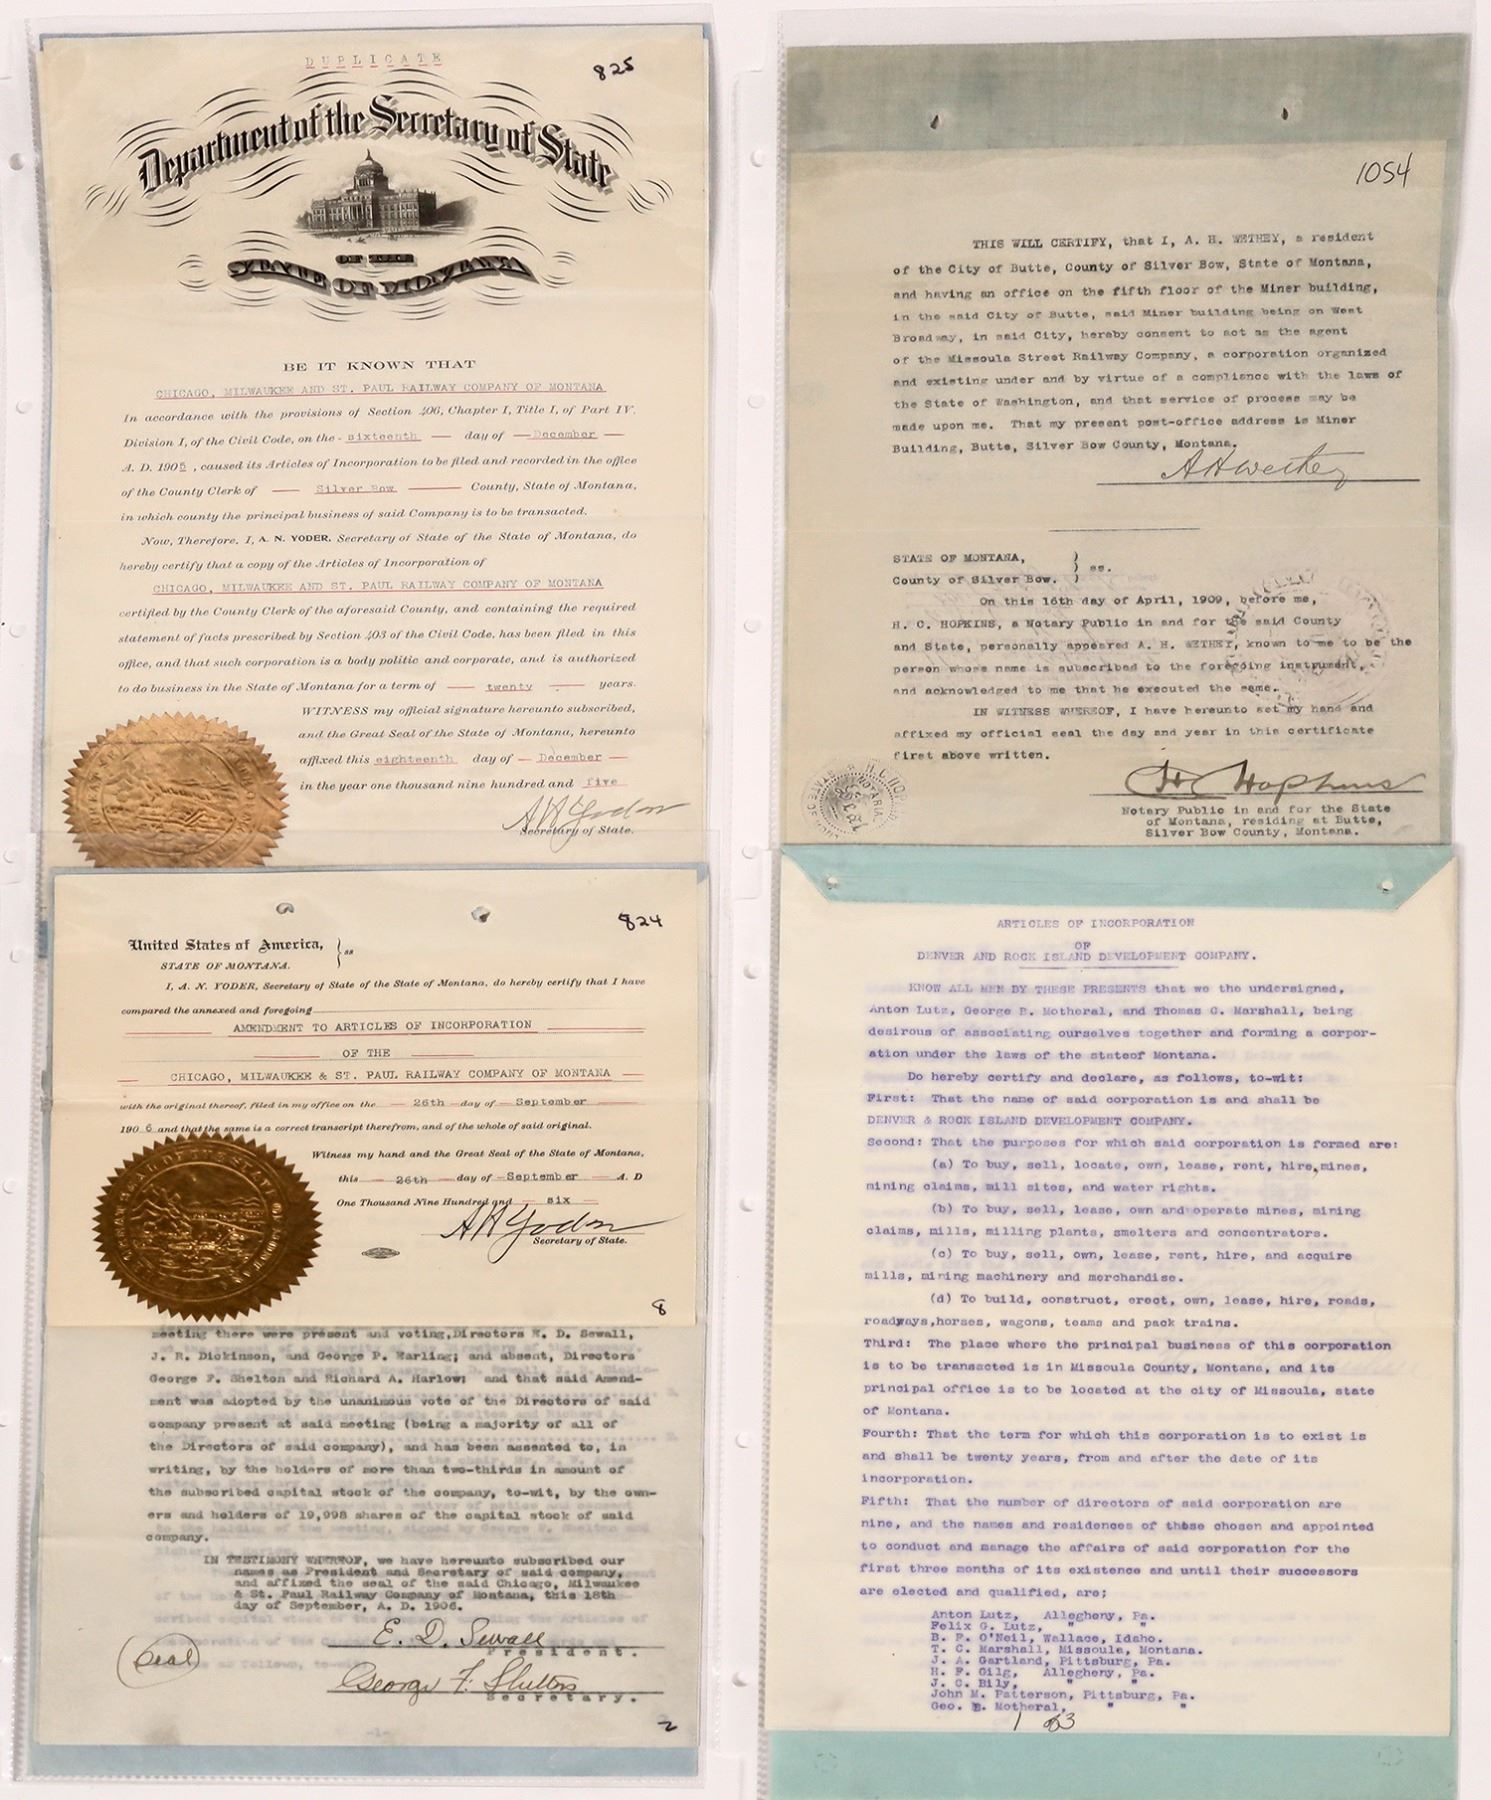 DUPLICATE
825
Department of the Secretary of State
OF THE
STATE OF MONTANA
BE IT KNOWN THAT
CHICAGO, MILWAUKEE AND ST. PAUL RAILWAY COMPANY OF MONTANA
In accordance with the provisions of Section 406, Chapter I, Title I, of Part IV,
Division I, of the Civil Code, on the - sixteenth — day of — December —
A. D. 1905 , caused its Articles of Incorporation to be filed and recorded in the office
of the County Clerk of — Silver Bow — County, State of Montana,
in which county the principal business of said Company is to be transacted.
Now, Therefore, I, A. N. YODER, Secretary of State of the State of Montana, do
hereby certify that a copy of the Articles of Incorporation of
CHICAGO, MILWAUKEE AND ST. PAUL RAILWAY COMPANY OF MONTANA
certified by the County Clerk of the aforesaid County, and containing the required
statement of facts prescribed by Section 403 of the Civil Code, has been filed in this
office, and that such corporation is a body politic and corporate, and is authorized
to do business in the State of Montana for a term of — twenty — years.
WITNESS my official signature hereunto subscribed,
and the Great Seal of the State of Montana, hereunto
affixed this eighteenth day of — December —
in the year one thousand nine hundred and five
A N Yoder
Secretary of State.
824
United States of America, } ss
STATE OF MONTANA.
I, A. N. YODER, Secretary of State of the State of Montana, do hereby certify that I have
compared the annexed and foregoing
AMENDMENT TO ARTICLES OF INCORPORATION
OF THE
CHICAGO, MILWAUKEE & ST. PAUL RAILWAY COMPANY OF MONTANA
with the original thereof, filed in my office on the — 26th — day of — September
190 6 and that the same is a correct transcript therefrom, and of the whole of said original.
Witness my hand and the Great Seal of the State of Montana,
this — 26th — day of — September — A. D
One Thousand Nine Hundred and — six —
A N Yoder
Secretary of State.
8
meeting there were present and voting, Directors E. D. Sewall,
J. R. Dickinson, and George P. Earling; and absent, Directors
George F. Shelton and Richard A. Harlow; and that said Amend-
ment was adopted by the unanimous vote of the Directors of said
company present at said meeting (being a majority of all of
the Directors of said company), and has been assented to, in
writing, by the holders of more than two-thirds in amount of
the subscribed capital stock of the company, to-wit, by the own-
ers and holders of 19,998 shares of the capital stock of said
company.
IN TESTIMONY WHEREOF, we have hereunto subscribed our
names as President and Secretary of said company,
and affixed the seal of the said Chicago, Milwaukee
& St. Paul Railway Company of Montana, this 18th
day of September, A. D. 1906.
E. D. Sewall
President.
Seal
George F. Shelton
Secretary.
-1-
2
1054
THIS WILL CERTIFY, that I, A. H. WETHEY, a resident
of the City of Butte, County of Silver Bow, State of Montana,
and having an office on the fifth floor of the Miner building,
in the said City of Butte, said Miner building being on West
Broadway, in said City, hereby consent to act as the agent
of the Missoula Street Railway Company, a corporation organized
and existing under and by virtue of a compliance with the laws of
the State of Washington, and that service of process may be
made upon me. That my present post-office address is Miner
Building, Butte, Silver Bow County, Montana.
A H Wethey
STATE OF MONTANA, )
) ss.
County of Silver Bow. )
On this 16th day of April, 1909, before me,
H. C. HOPKINS, a Notary Public in and for the said County
and State, personally appeared A. H. WETHEY, known to me to be the
person whose name is subscribed to the foregoing instrument,
and acknowledged to me that he executed the same.
IN WITNESS WHEREOF, I have hereunto set my hand and
affixed my official seal the day and year in this certificate
first above written.
H C Hopkins
Notary Public in and for the State
of Montana, residing at Butte,
Silver Bow County, Montana.
ARTICLES OF INCORPORATION
OF
DENVER AND ROCK ISLAND DEVELOPMENT COMPANY.
KNOW ALL MEN BY THESE PRESENTS that we the undersigned,
Anton Lutz, George B. Motheral, and Thomas C. Marshall, being
desirous of associating ourselves together and forming a corpor-
ation under the laws of the stateof Montana.
Do hereby certify and declare, as follows, to-wit:
First: That the name of said corporation is and shall be
DENVER & ROCK ISLAND DEVELOPMENT COMPANY.
Second: That the purposes for which said corporation is formed are:
(a) To buy, sell, locate, own, lease, rent, hire,mines,
mining claims, mill sites, and water rights.
(b) To buy, sell, lease, own and operate mines, mining
claims, mills, milling plants, smelters and concentrators.
(c) To buy, sell, own, lease, rent, hire, and acquire
mills, mining machinery and merchandise.
(d) To build, construct, erect, own, lease, hire, roads,
roadways,horses, wagons, teams and pack trains.
Third: The place where the principal business of this corporation
is to be transacted is in Missoula County, Montana, and its
principal office is to be located at the city of Missoula, state
of Montana.
Fourth: That the term for which this corporation is to exist is
and shall be twenty years, from and after the date of its
incorporation.
Fifth: That the number of directors of said corporation are
nine, and the names and residences of those chosen and appointed
to conduct and manage the affairs of said corporation for the
first three months of its existence and until their successors
are elected and qualified, are;
Anton Lutz, Allegheny, Pa.
Felix G. Lutz, " "
B. F. O'Neil, Wallace, Idaho.
T. C. Marshall, Missoula, Montana.
J. A. Gartland, Pittsburg, Pa.
H. F. Gilg, Allegheny, Pa.
J. C. Bily, " "
John M. Patterson, Pittsburg, Pa.
Geo. B. Motheral, " "